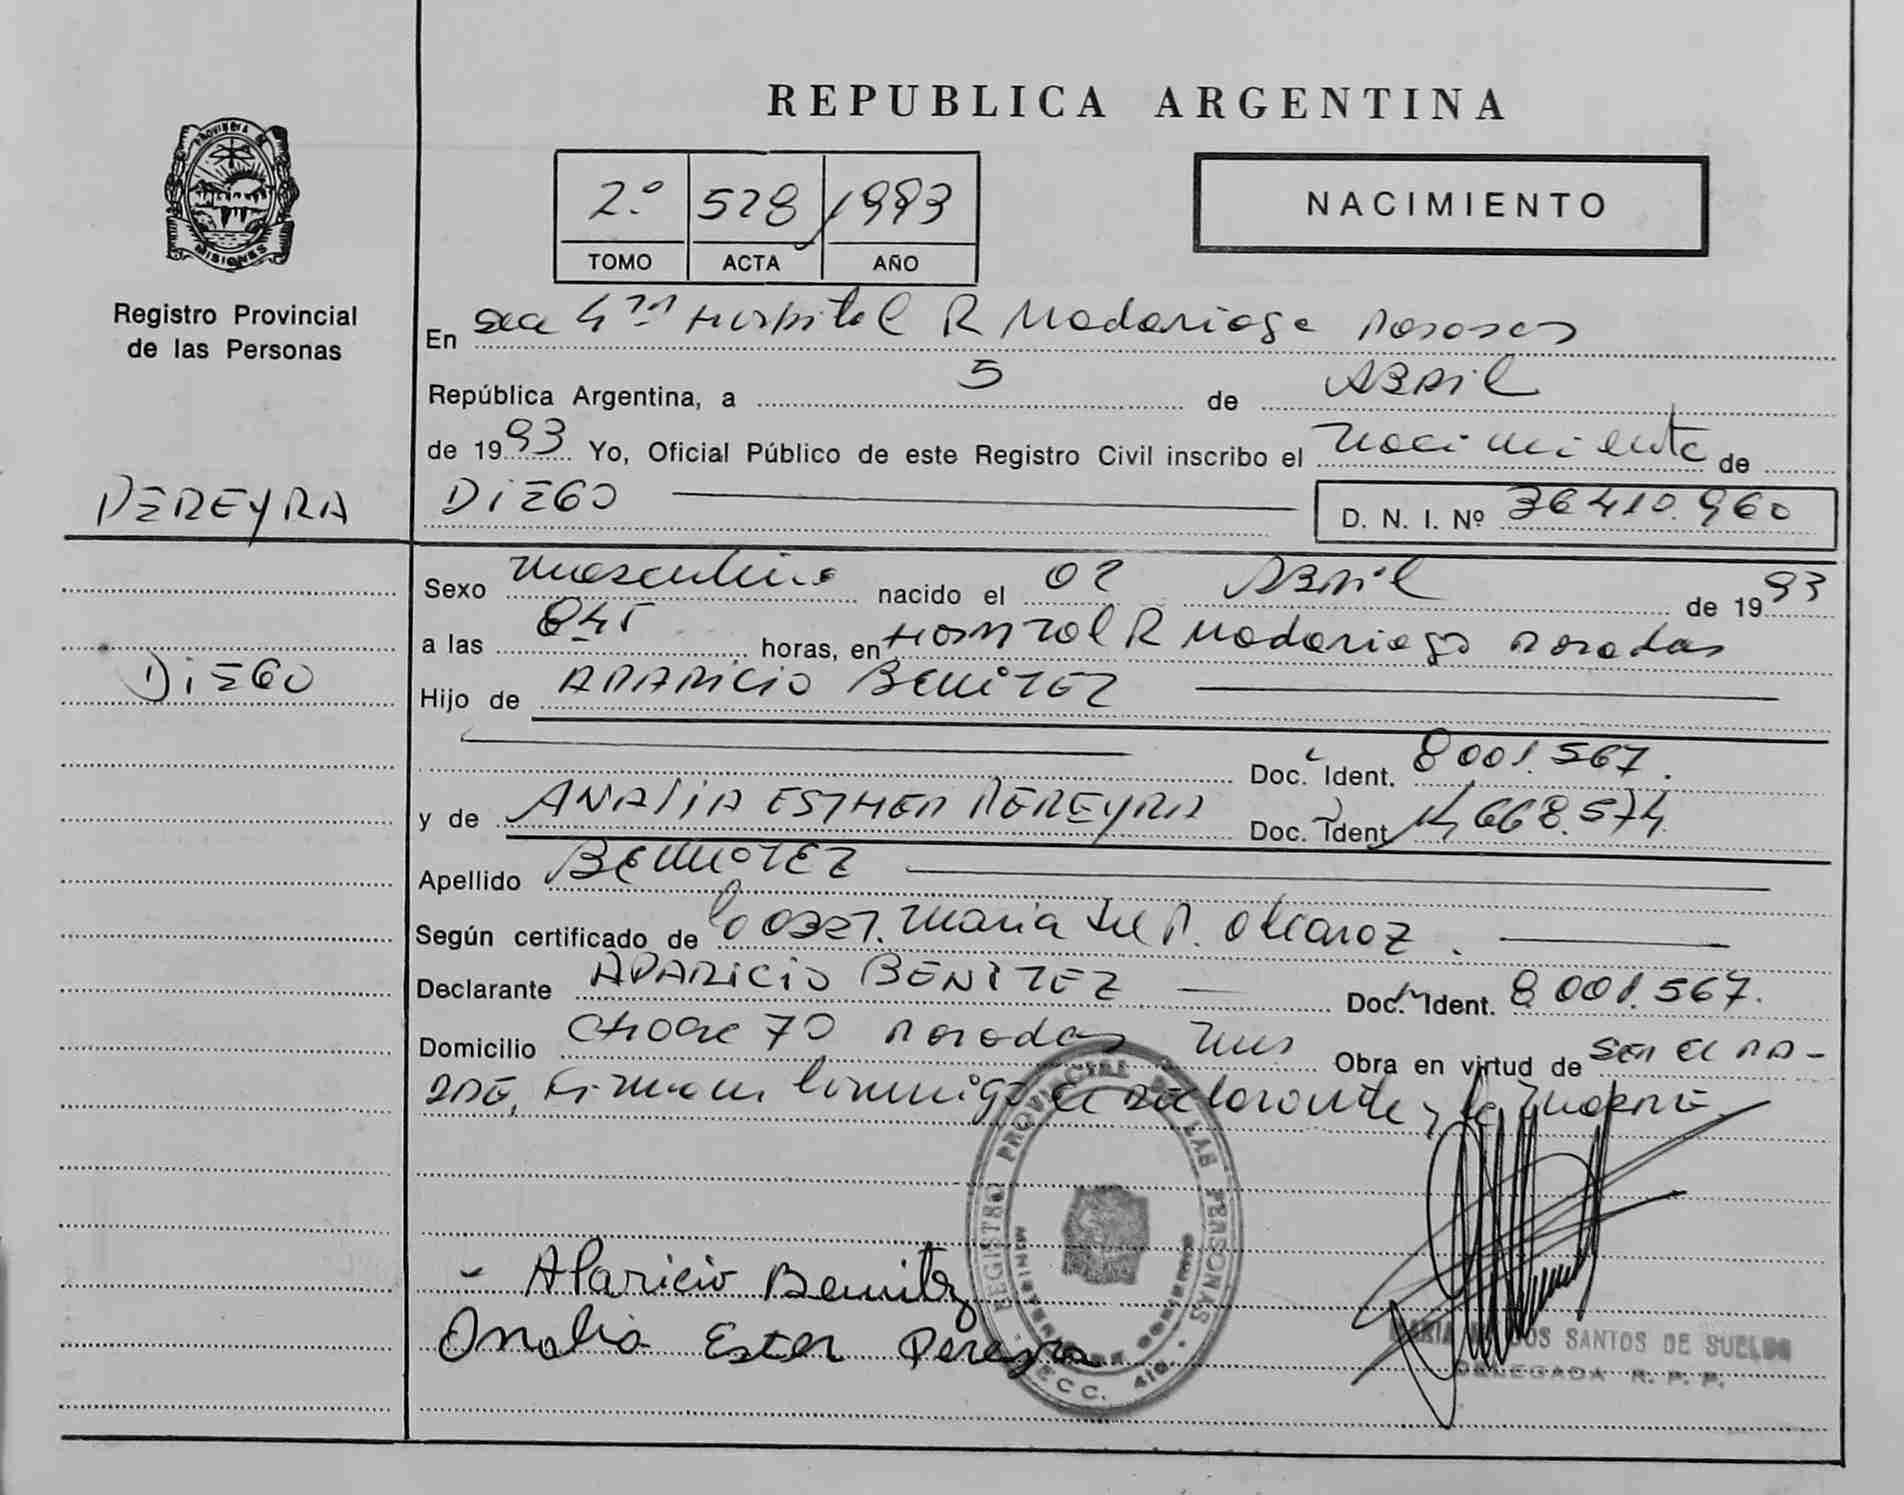 REPUBLICA ARGENTINA
PROVINCIA DE
MISIONES
Registro Provincial
de las Personas
2º 528 1993
TOMO ACTA AÑO
NACIMIENTO
En Secc 4ta Hospital R Madariaga Posadas
República Argentina, a 5 de Abril
de 1993 Yo, Oficial Público de este Registro Civil inscribo el Nacimiento de
PEREYRA
DiEGO D. N. I. Nº 36.410.960
Sexo Masculino nacido el 02 Abril de 1993
a las 845 horas, en Hospital R Madariaga Posadas
DiEGO
Hijo de APARICIO BENITEZ
Doc. Ident. 8001.567.
y de ANALIA ESTHER PEREYRA Doc. Ident 14.668.574
Apellido BENITEZ
Según certificado de la Obst. Maria del P. Alcaroz.
Declarante APARICIO BENITEZ Doc. Ident. 8.001.567.
Domicilio Chacra 70 Posadas Mnes Obra en virtud de SER EL PA-
DRE, Firman conmigo el declarante y la MADRE
REGISTRO PROVINCIAL DE LAS PERSONAS
MINISTERIO DE GOBIERNO
SECC. 4ta
- Aparicio Benitez
Analia Ester Pereyra
MARIA DOS SANTOS DE SUELDO
DELEGADA R. P. P.